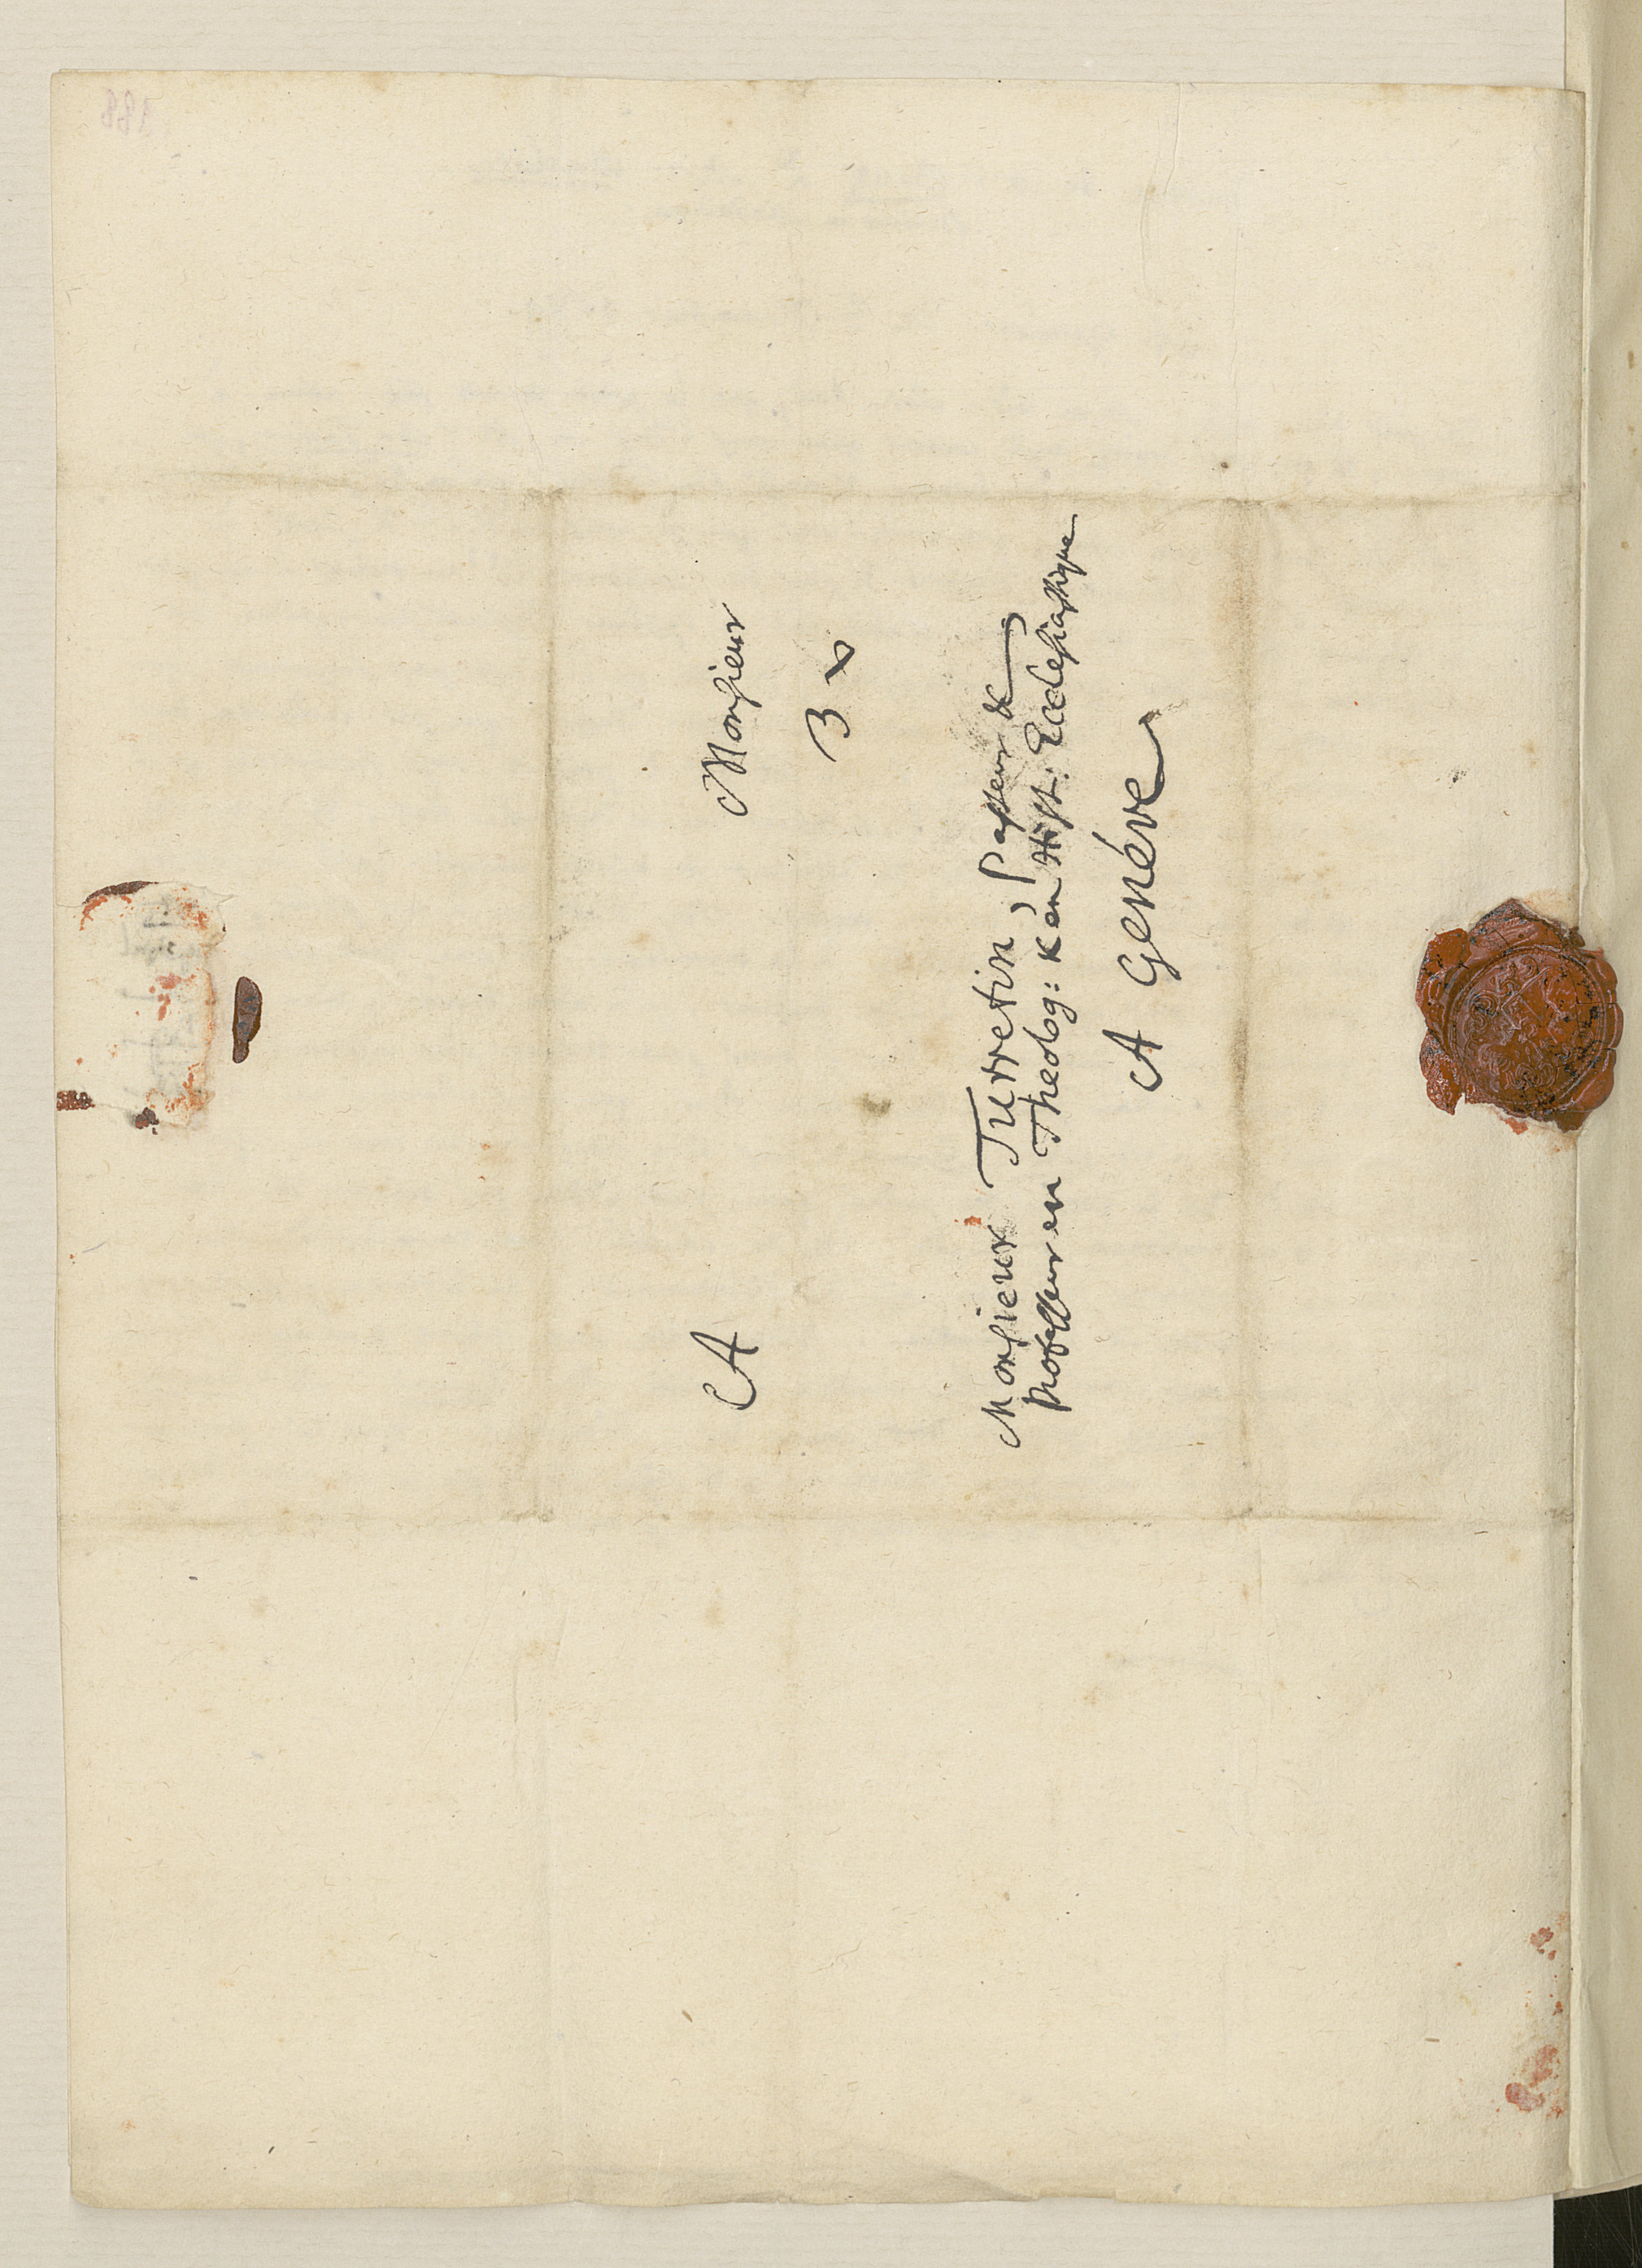 A Monsieur
3 x
Monsieur Turretin, Pasteur &
professeur en Theolog: & en Hist: Ecclesiastique
A Genéve